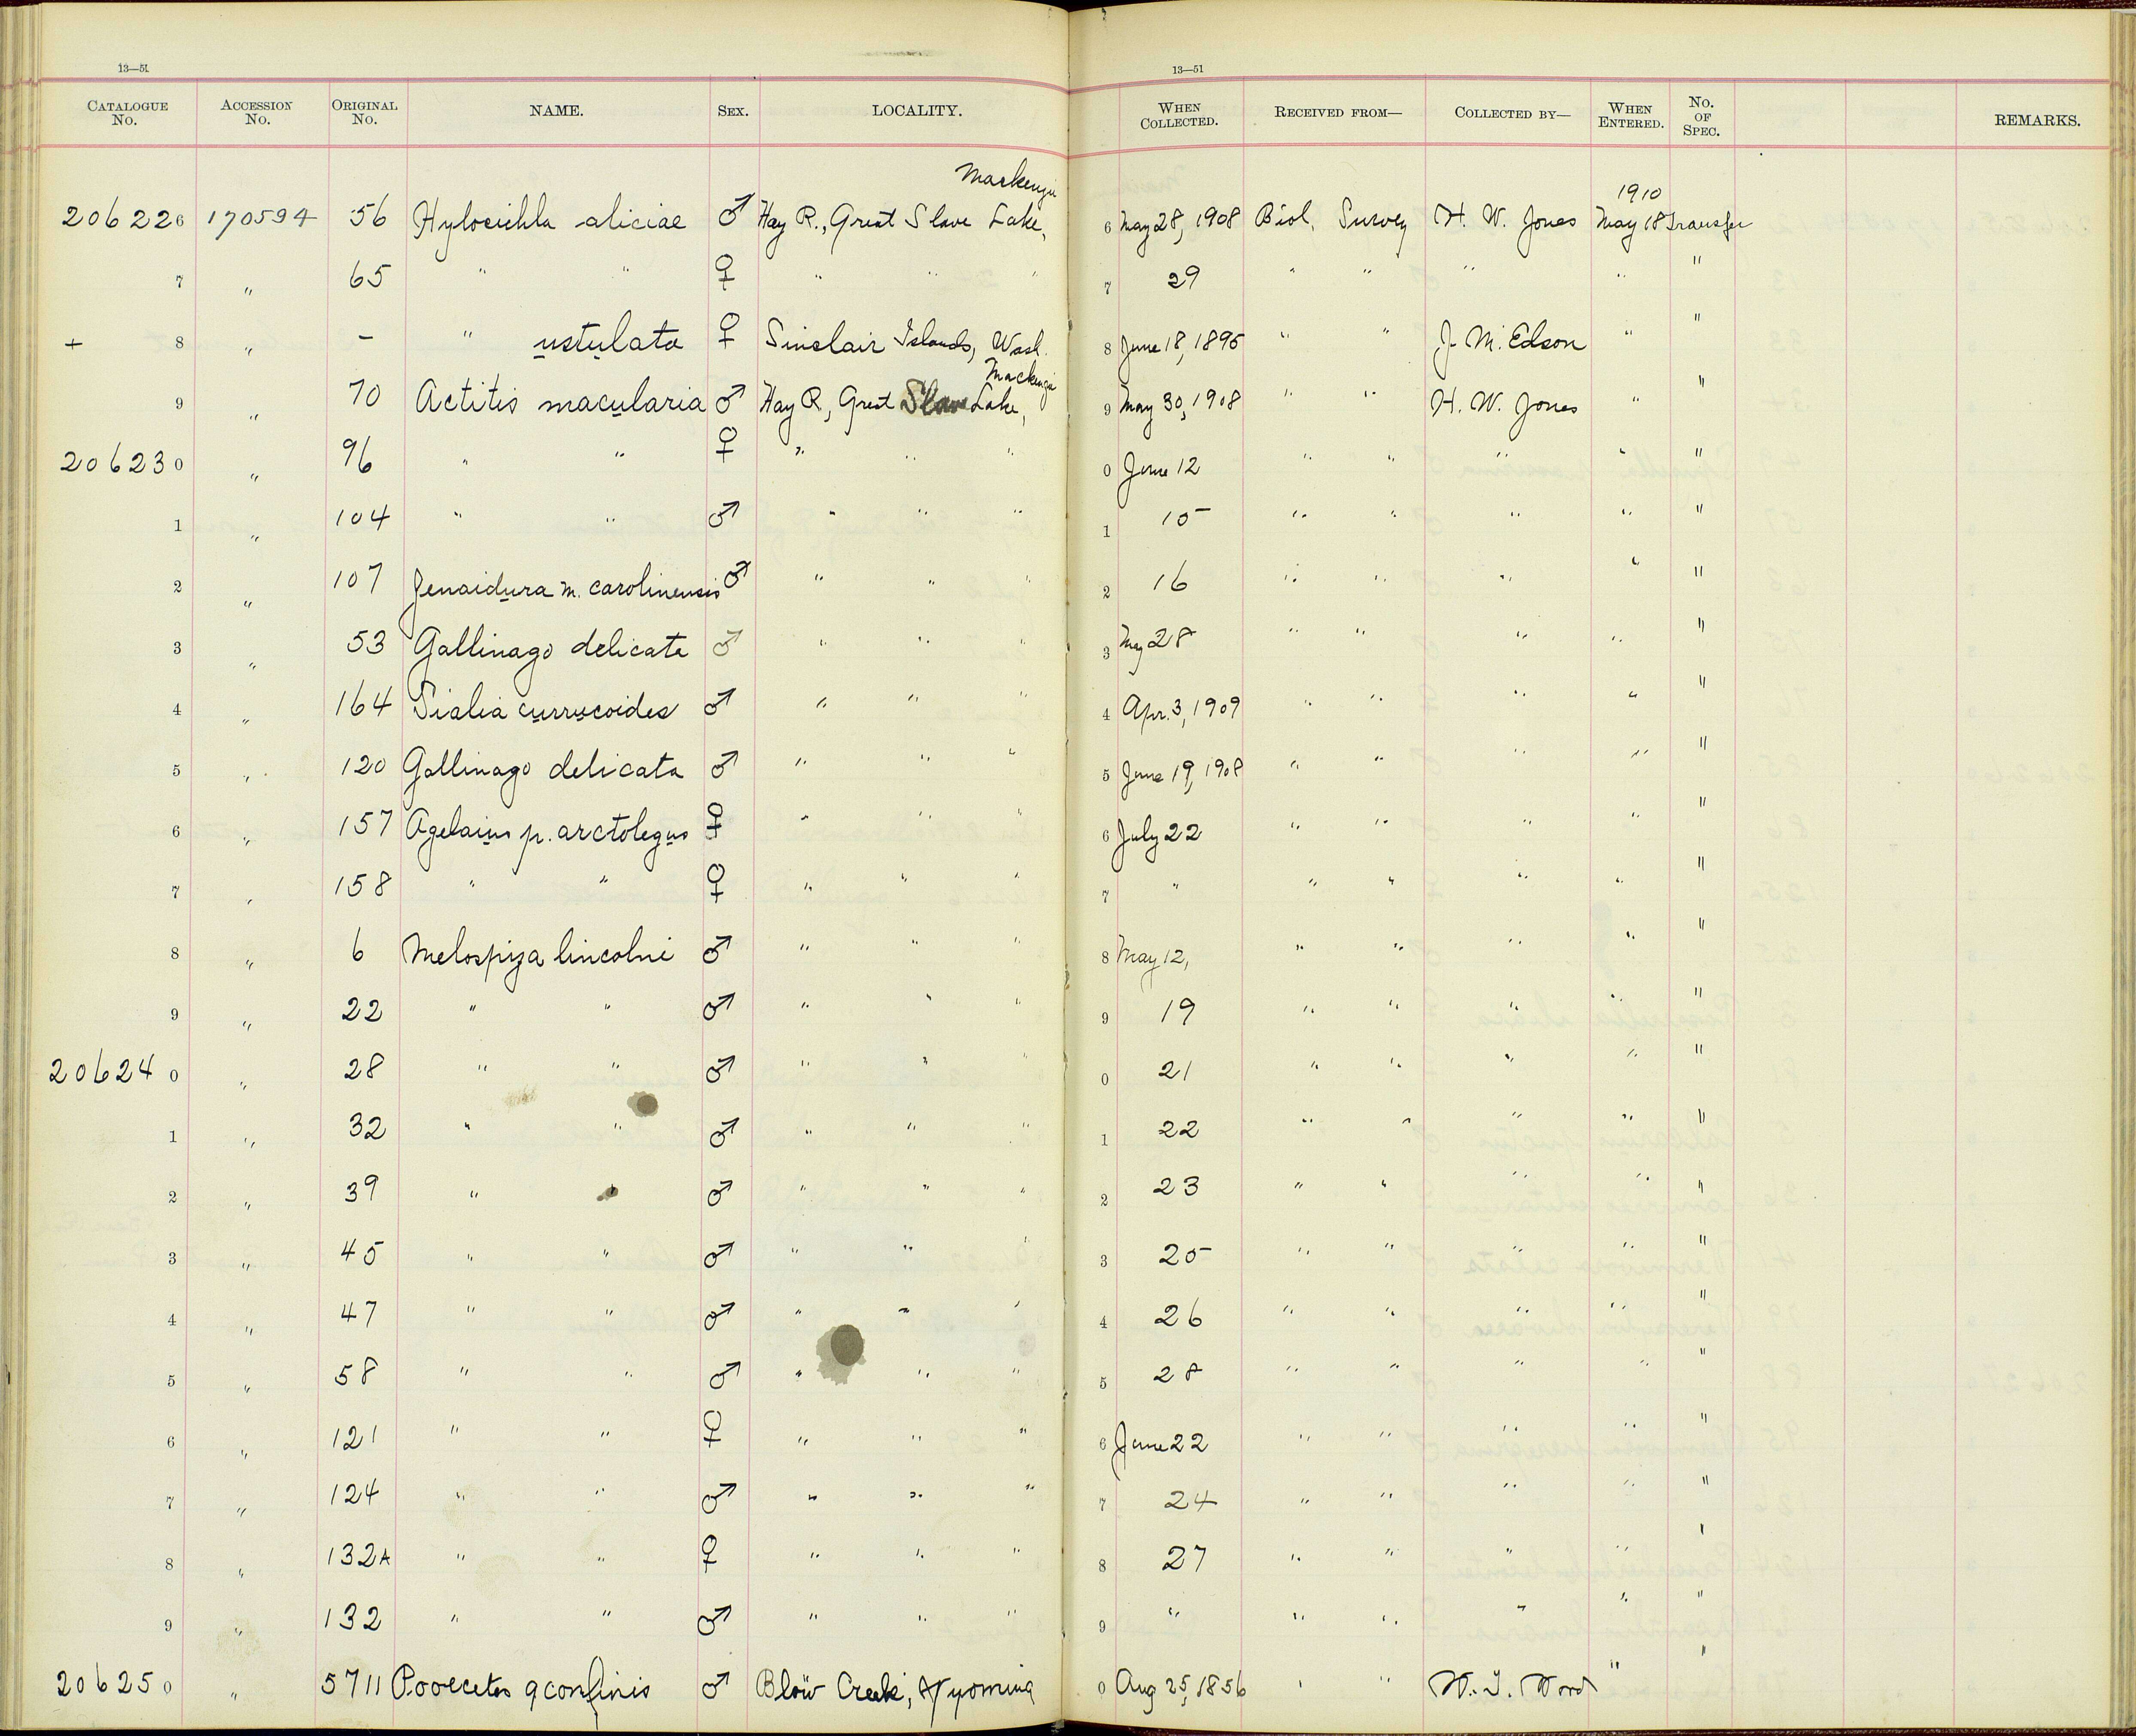 13—51 13—51
CATALOGUE No. ACCESSION No. ORIGINAL No. NAME. SEX. LOCALITY. WHEN COLLECTED. RECEIVED FROM— COLLECTED BY— WHEN ENTERED. No. OF SPEC. REMARKS.
Mackenzie 1910
206226 170594 56 Hylocichla aliciae ♂ Hay R., Great Slave Lake, 6 May 28, 1908 Biol. Survey H. W. Jones May 18 Transfer
7 " 65 " " ♀ " " " 7 29 " " " " "
+ 8 " – " ustulata ♀ Sinclair Islands, Wash. 8 June 18, 1895 " " J. M. Edson " "
Mackenzie
9 " 70 Actitis macularia ♂ Hay R, Great Slave Lake, 9 May 30, 1908 " " H. W. Jones " "
206230 " 96 " " ♀ " " " 0 June 12 " " " " "
1 " 104 " " ♂ " " " 1 15 " " " " "
2 " 107 Zenaidura m. carolinensis ♂ " " " 2 16 " " " " "
3 " 53 Gallinago delicata ♂ " " " 3 May 28 " " " " "
4 " 164 Sialia currucoides ♂ " " " 4 Apr. 3, 1909 " " " " "
5 " 120 Gallinago delicata ♂ " " " 5 June 19, 1908 " " " " "
6 " 157 Agelaius p. arctolegus ♀ " " " 6 July 22 " " " " "
7 " 158 " " ♀ " " " 7 " " " " " "
8 " 6 Melospiza lincolni ♂ " " " 8 May 12, " " " " "
9 " 22 " " ♂ " " " 9 19 " " " " "
206240 " 28 " " ♂ " " " 0 21 " " " " "
1 " 32 " " ♂ " " " 1 22 " " " " "
2 " 39 " " ♂ " " " 2 23 " " " " "
3 " 45 " " ♂ " " " 3 25 " " " " "
4 " 47 " " ♂ " " " 4 26 " " " " "
5 " 58 " " ♂ " " " 5 28 " " " " "
6 " 121 " " ♀ " " " 6 June 22 " " " " "
7 " 124 " " ♂ " " " 7 24 " " " " "
8 " 132A " " ♀ " " " 8 27 " " " " "
9 " 132 " " ♂ " " " 9 " " " " " "
206250 " 5711 Pooecetes g confinis ♂ Creek, Wyoming 0 Aug 25, 1856 " " W. Wood " "